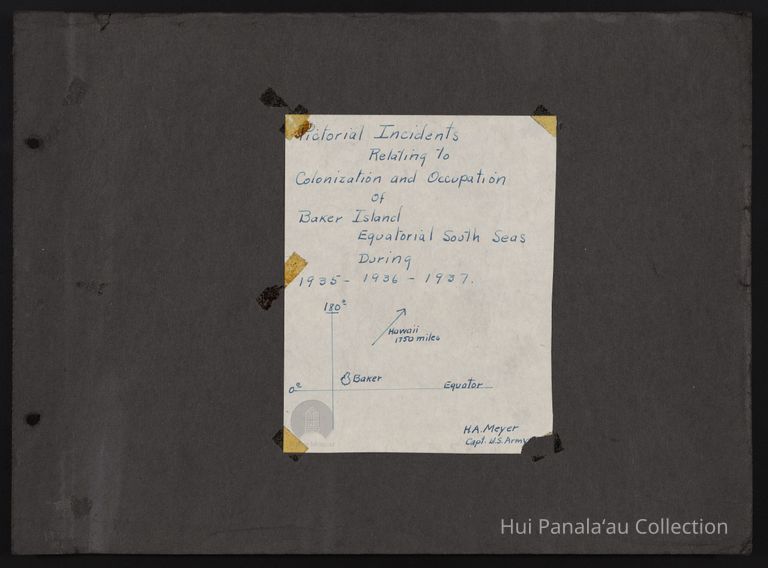 Pictorial Incidents
Relating to
Colonization and Occupation
of
Baker Island
Equatorial South Seas
During
1935 - 1936 - 1937.
180°
Hawaii
1750 miles
Baker
0°
Equator
H.A. Meyer
Capt. U.S. Army
Hui Panala‘au Collection